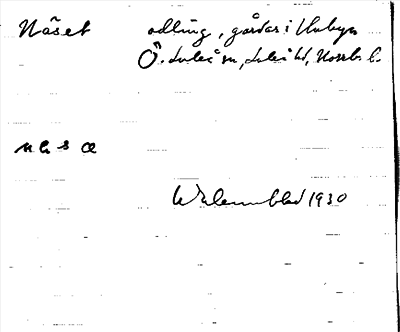 Näset odling, gårdar i Unbyn
Ö. Luleå sn, Luleå hd, Norrb. l.
W Elenmblad 1930